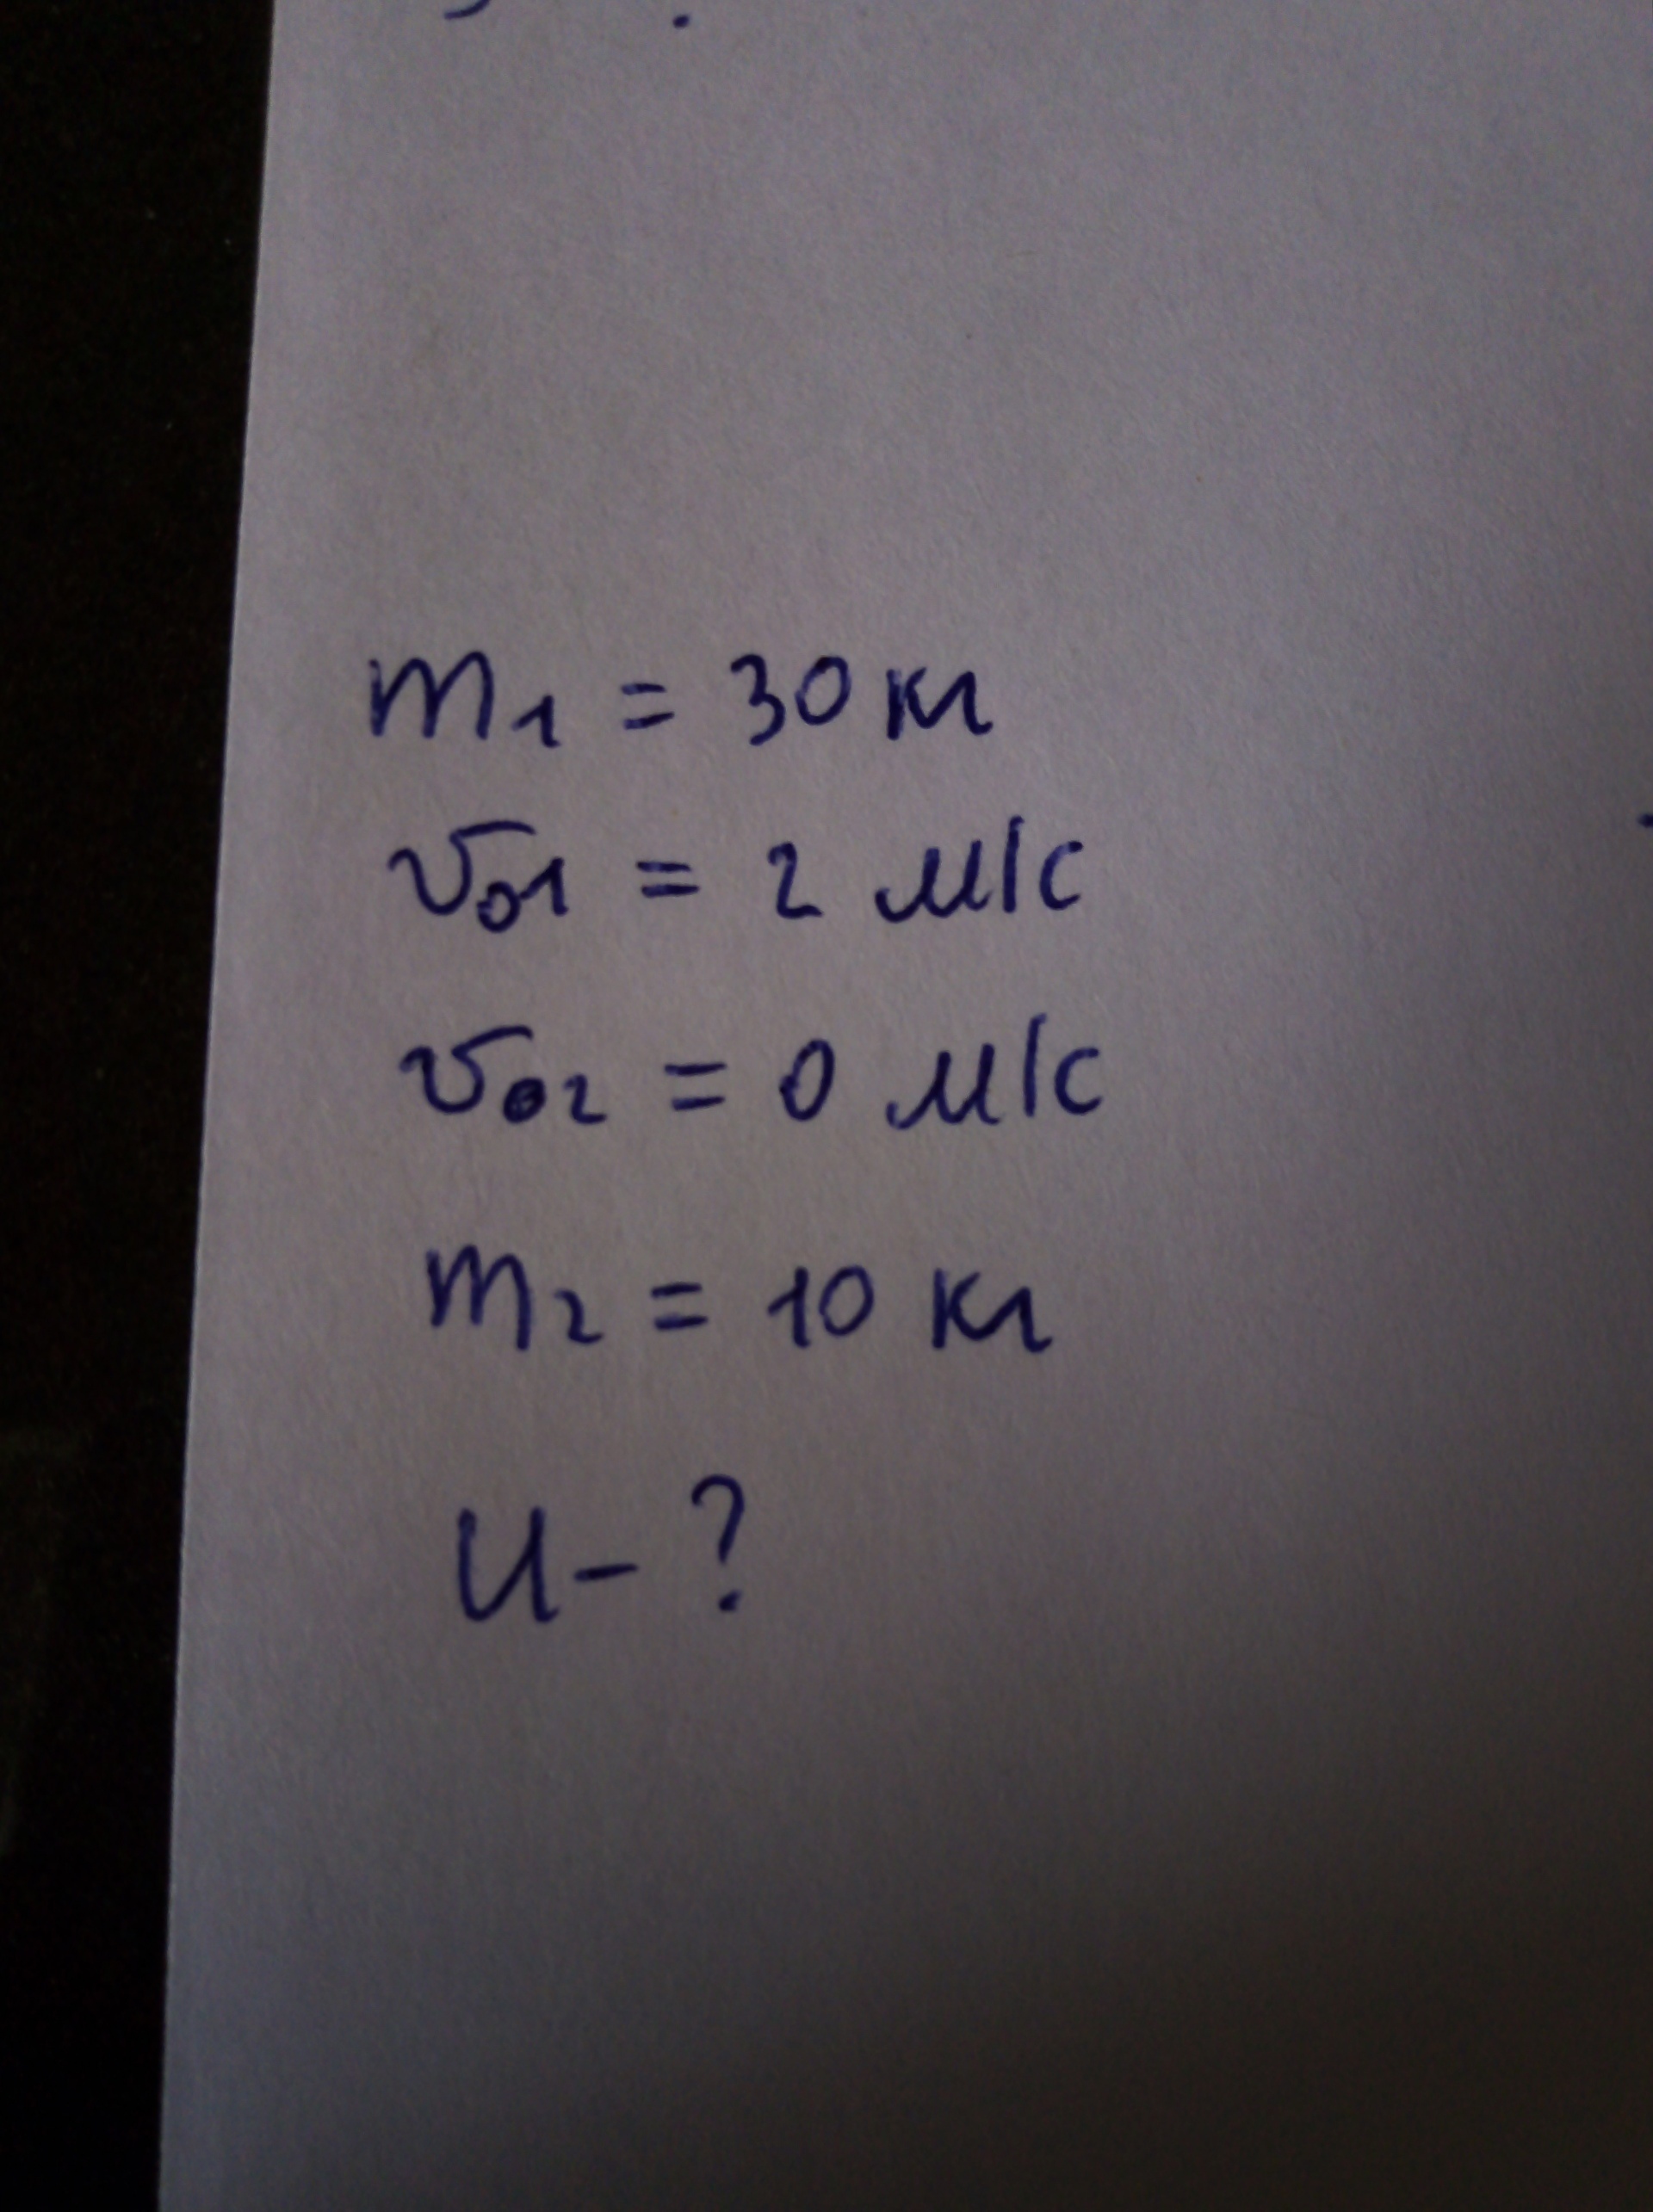 m₁ = 30 кг
v₀₁ = 2 м/с
v₀₂ = 0 м/с
m₂ = 10 кг
U - ?